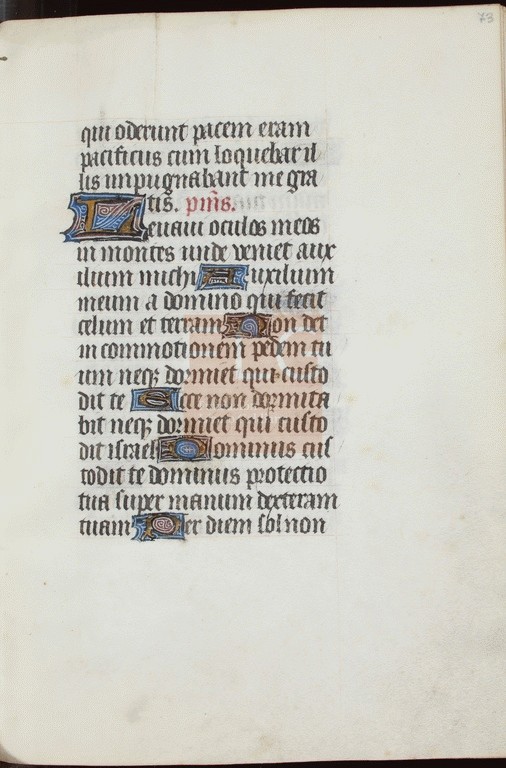 73
qui oderunt pacem eram
pacificus cum loquebar il
lis inpugnabant me gra
tis. pm̄s.
Leuaui oculos meos
in montes unde veniet aux
ilium michi Auxilium
meum a domino qui fecit
celum et terram Non det
in commotionem pedem tu
um neqꝫ dormiet qui custo
dit te Ecce non dormita
bit neqꝫ dormiet qui custo
dit israel Dominus cus
todit te dominus protectio
tua super manum dexteram
tuam Per diem sol non